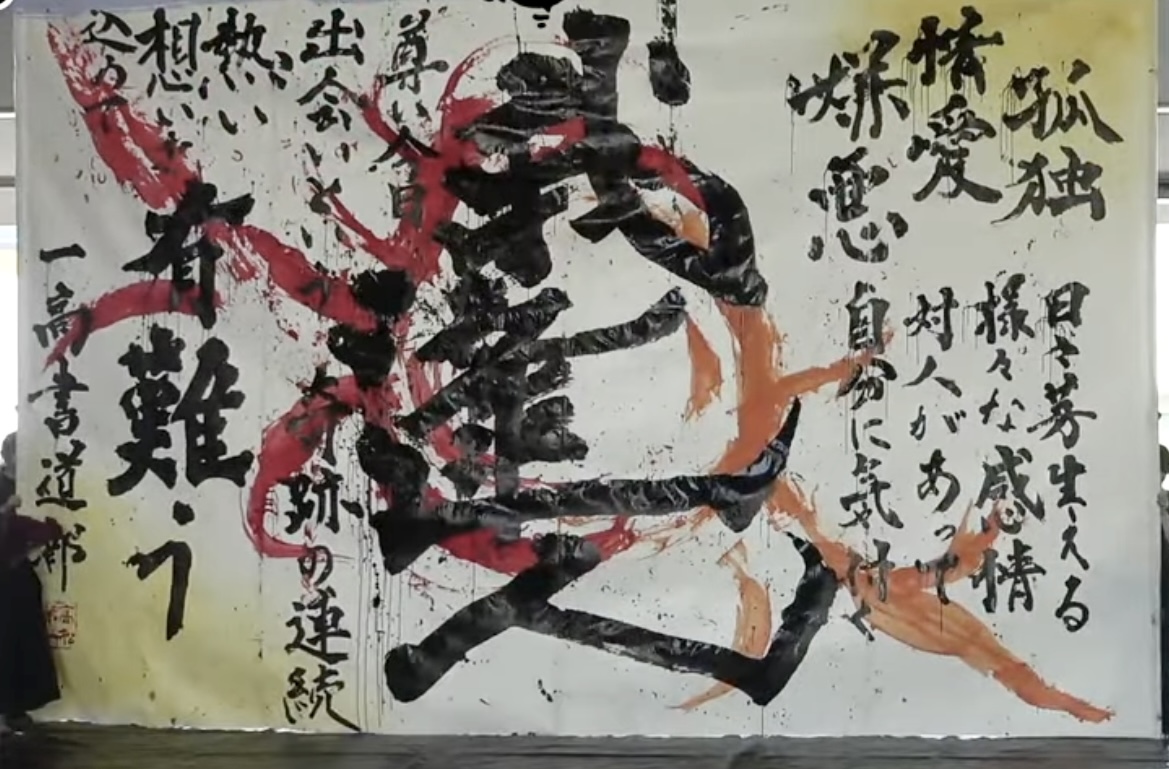 孤独
情愛
嫌悪
日々芽生える
様々な感情
対人があって
自分に気付く
尊い今日
出会いという
奇跡の連続
熱い
想いを
込めて
有難う
一高書道部